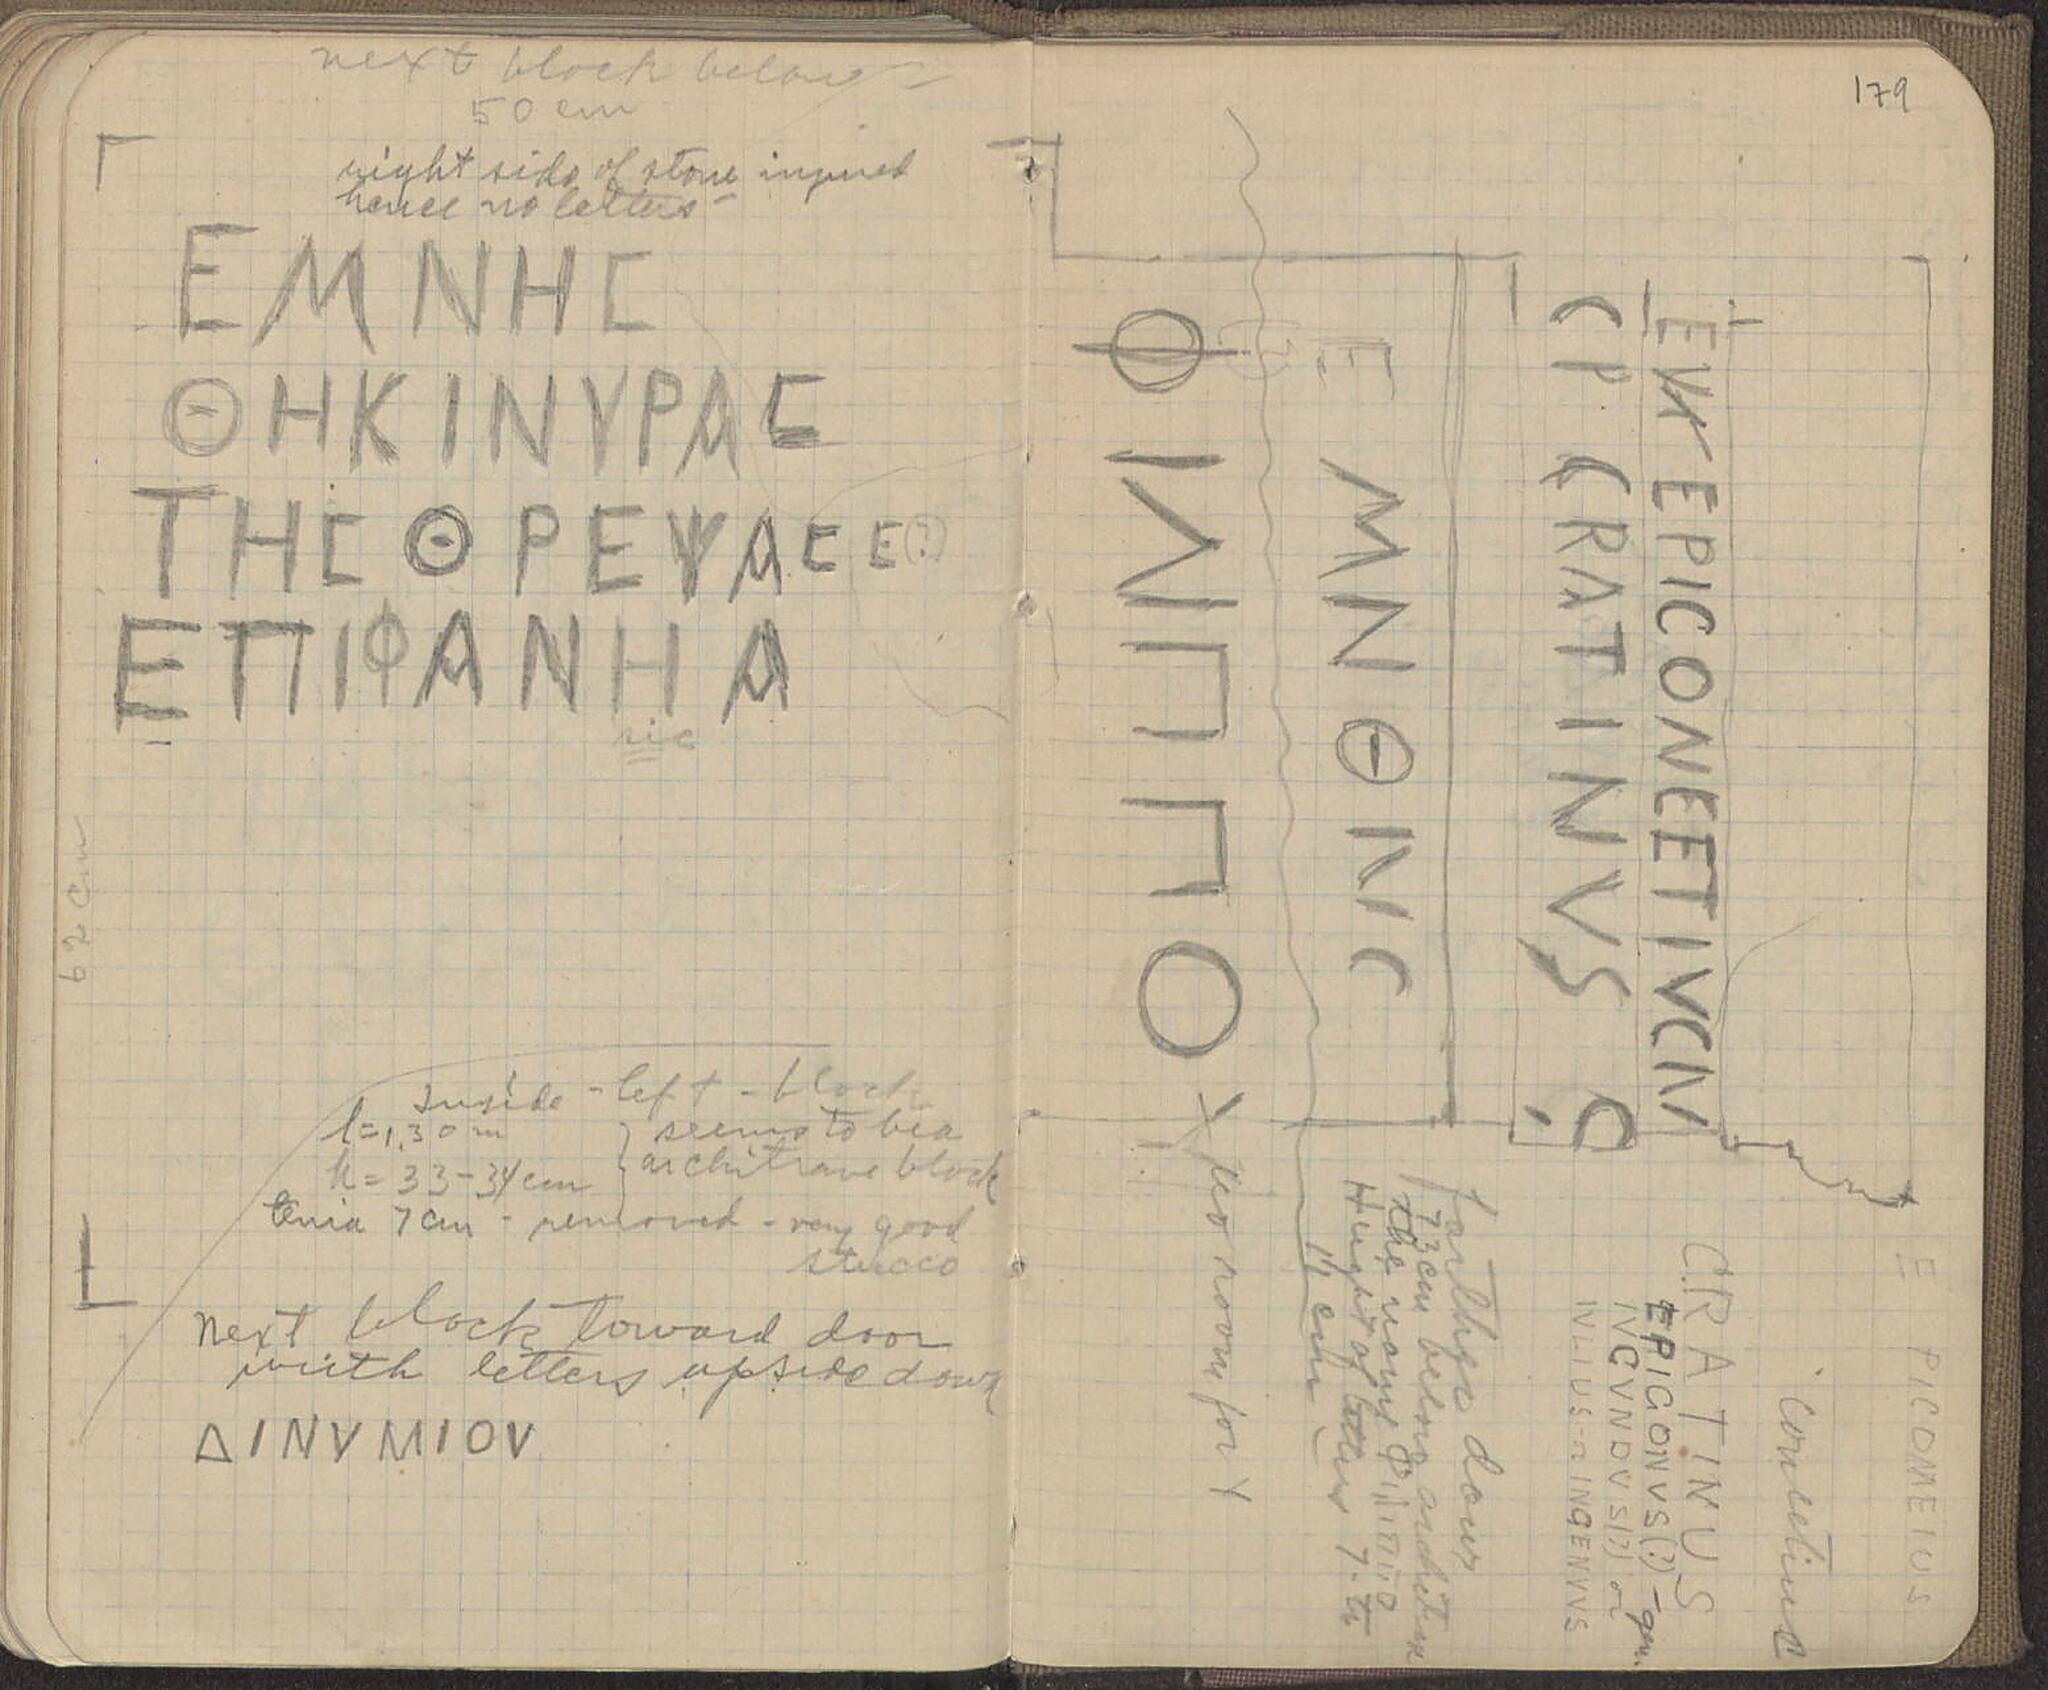 next block below
50 cm
right side of stone injured
hence no letters
ΕΜΝΗϹ
ΘΗΚΙΝΥΡΑϹ
ΤΗϹΘΡΕΨΑϹΕ(?)
ΕΠΙΦΑΝΗΑ
sic
62 cm
Inside - left - block
l = 1,30 m } seems to be a
h = 33-34 cm } architrave block
tenia 7 cm - removed - very good
stucco
next block toward door
with letters upside down
ΔΙΝΥΜΙΟΥ
179
CP CRATINVS
ΕΜΝΘΙΝϹ
ΦΙΛΙΠΠΟ
no room for Υ
farthger down
73 cm below architrave
Height of letters 7-
11 cm
E PICONEIUS
Cornelius
CRATINUS
EPIGONVS(?) - gen.
IVCVNDVS(?) or
INGENVVS